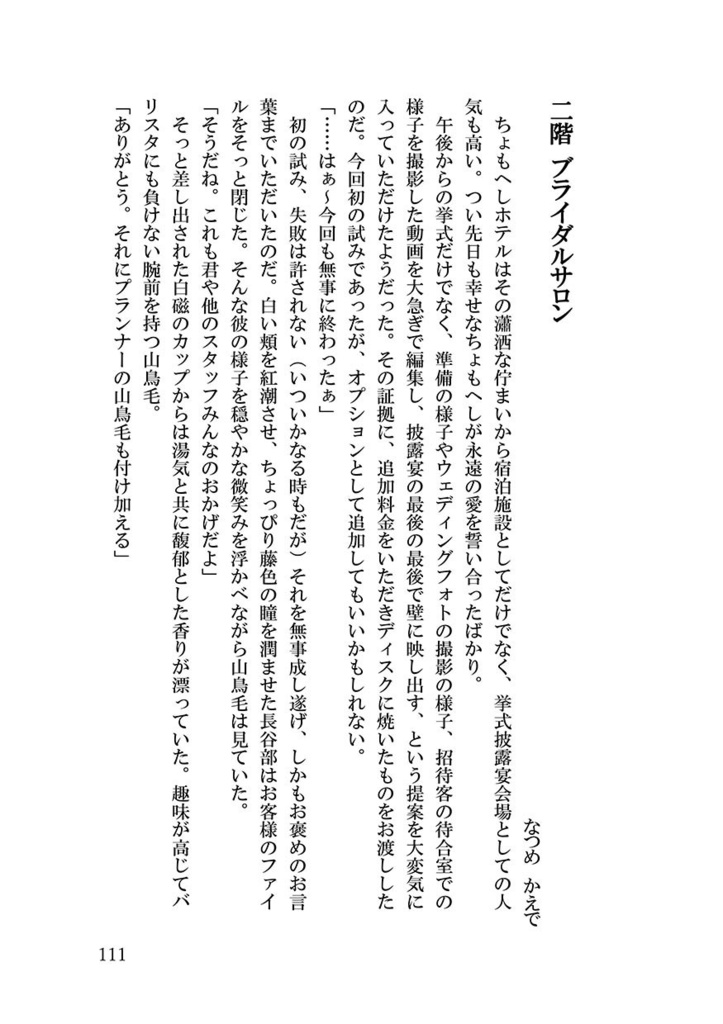 二階 ブライダルサロン
なつめ かえで
ちょもへしホテルはその瀟洒な佇まいから宿泊施設としてだけでなく、挙式披露宴会場としての人
気も高い。つい先日も幸せなちょもへしが永遠の愛を誓い合ったばかり。
午後からの挙式だけでなく、準備の様子やウェディングフォトの撮影の様子、招待客の待合室での
様子を撮影した動画を大急ぎで編集し、披露宴の最後の最後で壁に映し出す、という提案を大変気に
入っていただけたようだった。その証拠に、追加料金をいただきディスクに焼いたものをお渡しした
のだ。今回初の試みであったが、オプションとして追加してもいいかもしれない。
「……はぁ～今回も無事に終わったぁ」
初の試み、失敗は許されない（いついかなる時もだが）それを無事成し遂げ、しかもお褒めのお言
葉までいただいたのだ。白い頬を紅潮させ、ちょっぴり藤色の瞳を潤ませた長谷部はお客様のファイ
ルをそっと閉じた。そんな彼の様子を穏やかな微笑みを浮かべながら山鳥毛は見ていた。
「そうだね。これも君や他のスタッフみんなのおかげだよ」
そっと差し出された白磁のカップからは湯気と共に馥郁とした香りが漂っていた。趣味が高じてバ
リスタにも負けない腕前を持つ山鳥毛。
「ありがとう。それにプランナーの山鳥毛も付け加える」
111